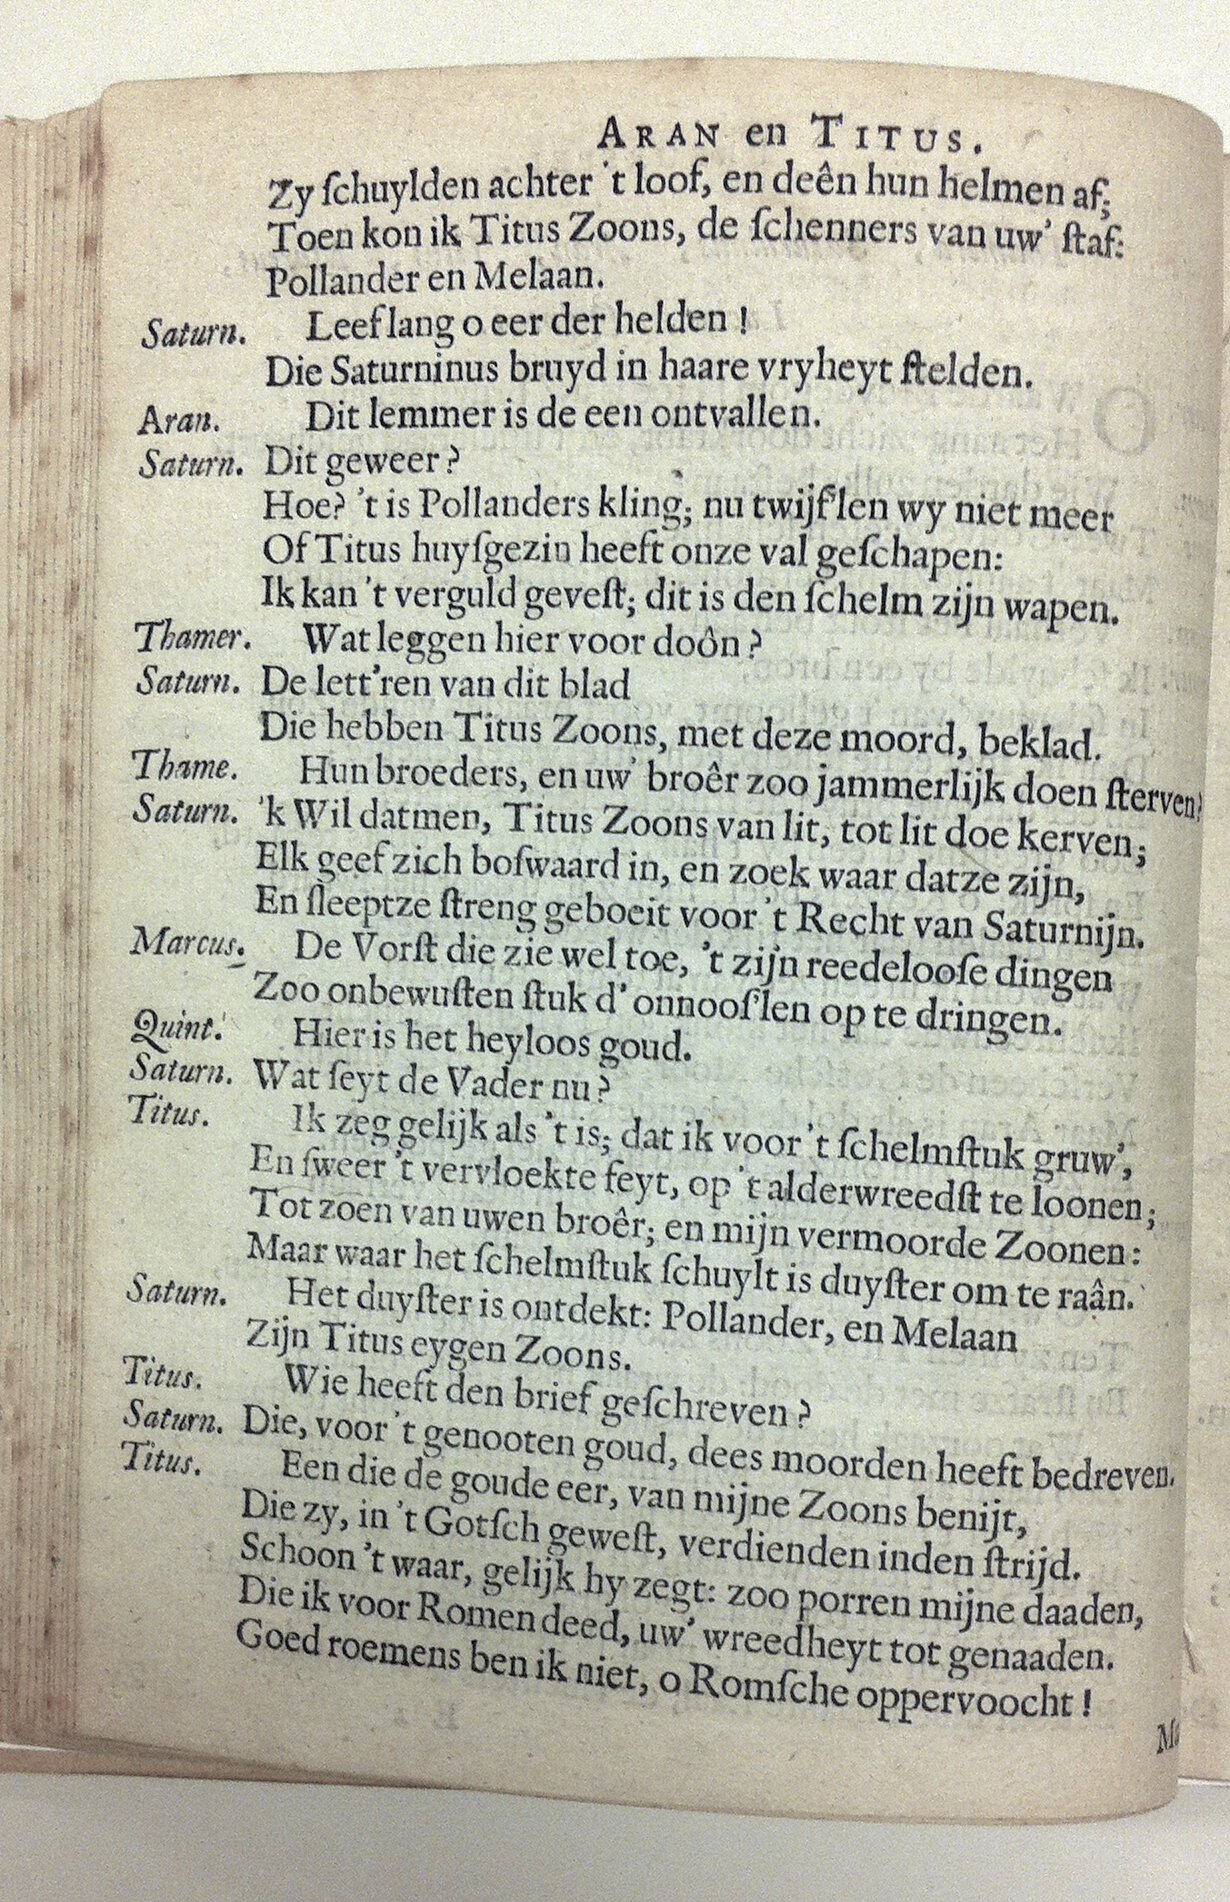 ARAN en TITUS.
Zy ſchuylden achter 't loof, en deên hun helmen af;
Toen kon ik Titus Zoons, de ſchenners van uw' ſtaf:
Pollander en Melaan.
Saturn. Leef lang o eer der helden !
Die Saturninus bruyd in haare vryheyt ſtelden.
Aran. Dit lemmer is de een ontvallen.
Saturn. Dit geweer?
Hoe? 't is Pollanders kling; nu twijf'len wy niet meer
Of Titus huyſgezin heeft onze val geſchapen:
Ik kan 't verguld geveſt; dit is den ſchelm zijn wapen.
Thamer. Wat leggen hier voor doôn?
Saturn. De lett'ren van dit blad
Die hebben Titus Zoons, met deze moord, beklad.
Thame. Hun broeders, en uw' broêr zoo jammerlijk doen ſterven?
Saturn. 'k Wil datmen, Titus Zoons van lit, tot lit doe kerven;
Elk geef zich boſwaard in, en zoek waar datze zijn,
En ſleeptze ſtreng geboeit voor 't Recht van Saturnijn.
Marcus. De Vorſt die zie wel toe, 't zijn reedelooſe dingen
Zoo onbewuſten ſtuk d' onnooſ'len op te dringen.
Quint. Hier is het heyloos goud.
Saturn. Wat ſeyt de Vader nu?
Titus. Ik zeg gelijk als 't is; dat ik voor 't ſchelmſtuk gruw',
En ſweer 't vervloekte feyt, op 't alderwreedſt te loonen;
Tot zoen van uwen broêr; en mijn vermoorde Zoonen:
Maar waar het ſchelmſtuk ſchuylt is duyſter om te raân.
Saturn. Het duyſter is ontdekt: Pollander, en Melaan
Zijn Titus eygen Zoons.
Titus. Wie heeft den brief geſchreven?
Saturn. Die, voor 't genooten goud, dees moorden heeft bedreven.
Titus. Een die de goude eer, van mijne Zoons benijt,
Die zy, in 't Gotſch geweſt, verdienden inden ſtrijd.
Schoon 't waar, gelijk hy zegt: zoo porren mijne daaden,
Die ik voor Romen deed, uw' wreedheyt tot genaaden.
Goed roemens ben ik niet, o Romſche oppervoocht !